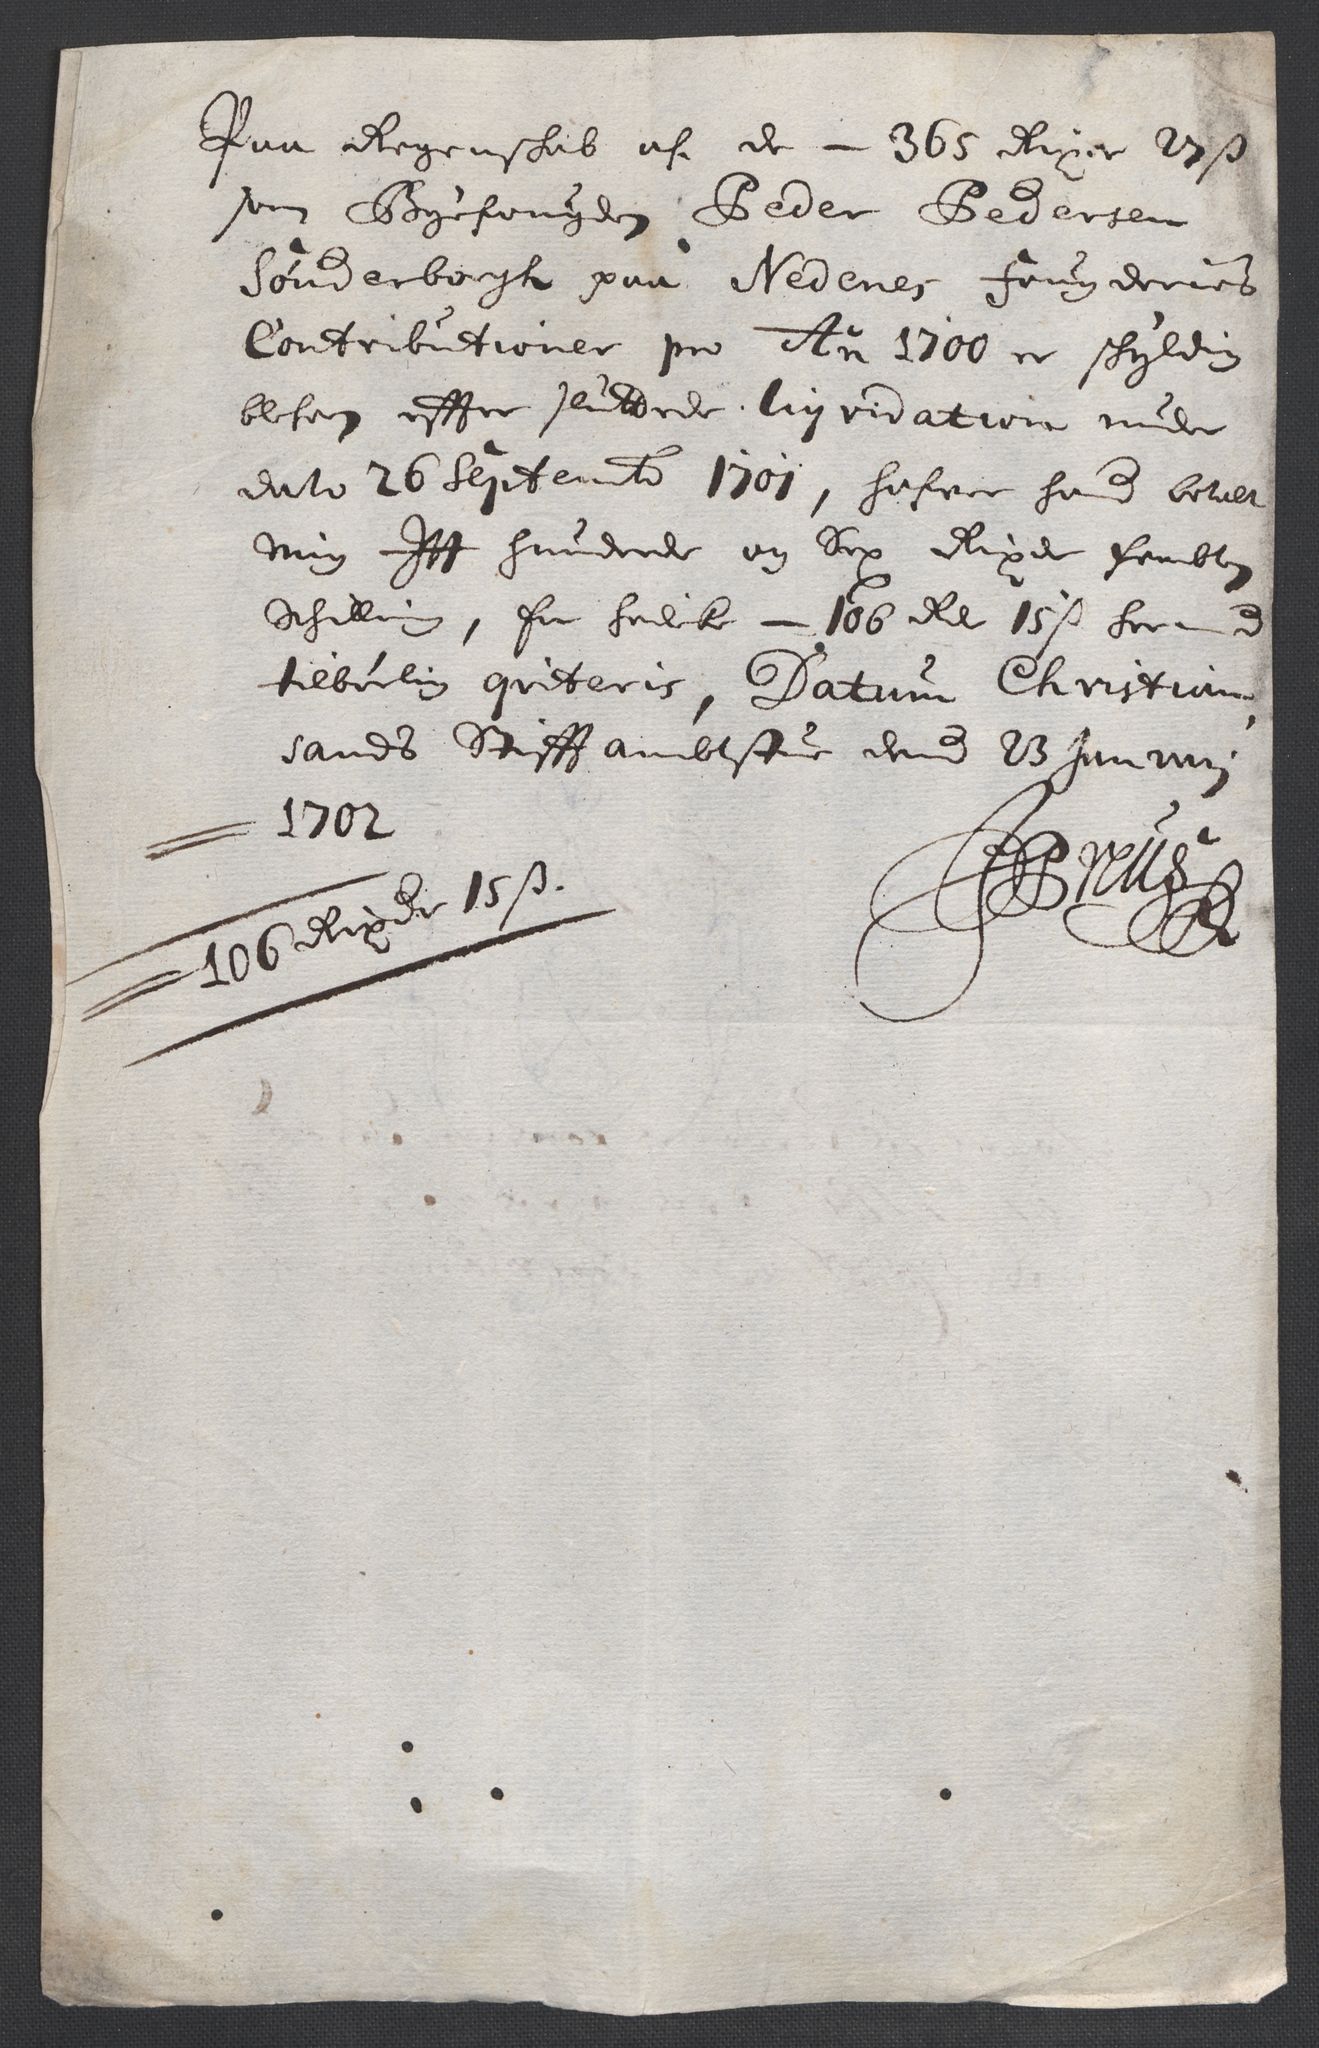 Paa Regenschab af de — 365 Rixdr 27 ß
som Byefougden Peder Pedersen
Sönderborgh paa Nedenes fougderies
Contributioner pro Año 1700 er schyldig
blefven efter sluttede liqvidation under
dato 26 Septembr 1701, hafver hand betalt
mig Itt hunderde og Sex Rixdr fembten
Schilling, som — 106 Rdr 15 ß hermed
tilbørlig qviteris, Datum Christian
sands Stifftambtstue dend 23 Januarij
1702
106 Rixdr 15 ß.